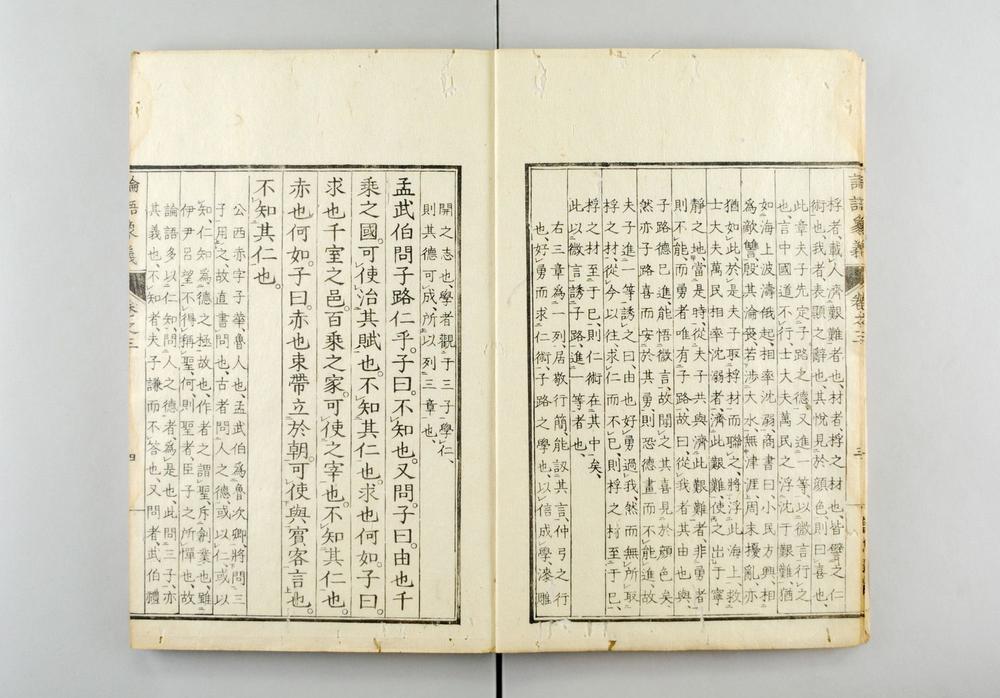 論語象義 卷之三 三
桴者、載人濟艱難者也、材者、桴之材也、皆譬之仁
術也、我者、表顯之辭也、其悅見於顏色則曰喜也、
此章夫子先定子路之德、又進一等、以微言行之
也、言中國道不行、士大夫萬民之浮沈于艱難、猶
如海上波濤俄起、相率沈溺、商書曰小民方興、相
爲敵讐、殷其淪喪、若涉大水、無津涯、周末擾亂、亦
猶如此、於是夫子取桴材而聯之、將浮此海上、救
士大夫萬民相率沈溺者、濟此艱難、使之出于寧
靜之地、當是時、從夫子共與濟此艱難者、非勇者
則不能、而勇者唯有子路、故曰、從我者其由也與、
子路德已進、能悟微言、故聞之喜、喜見於顏色矣、
然亦子路喜而安於其勇、則恐德畫而不能進、故
夫子進一等、誘之曰、由也好勇過我、然而無所取
桴之材、從今以往求仁而不已、則桴之材至于已、
桴之材至于已、則仁術在其中矣、
此以微言誘子路、進一等者也、
右三章爲一列、居敬行簡、能訒其言、仲弓之行
也、好勇而求仁術、子路之學也、以信成學、漆雕
開之志也、學者觀于三子學仁、
則其德可成、所以列三章也、
孟武伯問子路仁乎。子曰。不知也。又問。子曰。由也千
乘之國。可使治其賦也。不知其仁也。求也何如。子曰。
求也千室之邑。百乘之家。可使之宰也。不知其仁也。
赤也何如。子曰。赤也束帶立於朝。可使與賓客言也。
不知其仁也。
公西赤字子華、魯人也、孟武伯爲魯次卿、將問三
子用之、故直書問也、古者問人之德、或以仁、或以
知、仁知爲德之極故也、作者之謂聖、斥創業也、雖
伊尹呂望不得稱聖、何則聖者、臣子之所憚也、故
論語多以仁知、問人之德者爲是也、此問三子、亦
其義也、不知者、夫子謙而不答也、又問者、武伯禮
論語象義 卷之三 四